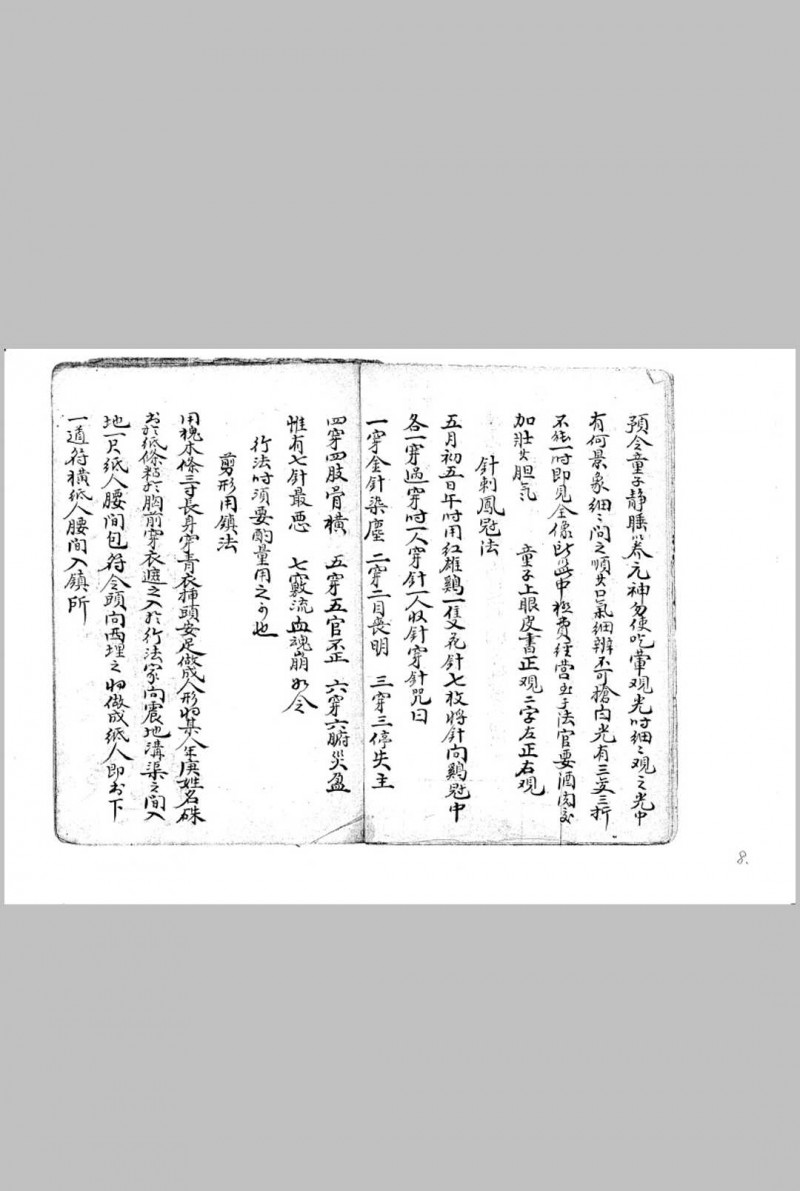 預令童子静睡以养元神勿使吃葷观光时细々观之光中
有何景象细々问之順其口氣细辨不可搶白光有三变三折
不能一时即見全像此盆中極費经营主于法官要酒肉
加壯其胆氣 童子上眼皮書正观二字左正右观
針刺鳳冠法
五月初五日午时用紅雄鷄一隻花針七枚將針向鷄冠中
各一穿過穿时一人穿針一人收針穿針咒曰
一穿金針染塵 二穿二目喪明 三穿三停失主
四穿四肢骨横 五穿五官不正 六穿六腑災盈
惟有七針最恶 七竅流血魂崩如令
行法时須要酌量用之可也
剪形用鎮法
用槐木條三寸長身穿青衣插頭安足做成人形将某人年庚姓名硃
书於紙條粘於胸前穿衣遮之入於行法家向震地溝渠之间入
地一尺紙人腰间包符令頭向西埋之将做成紙人即书下
一道符横紙人腰间入鎮所
8.